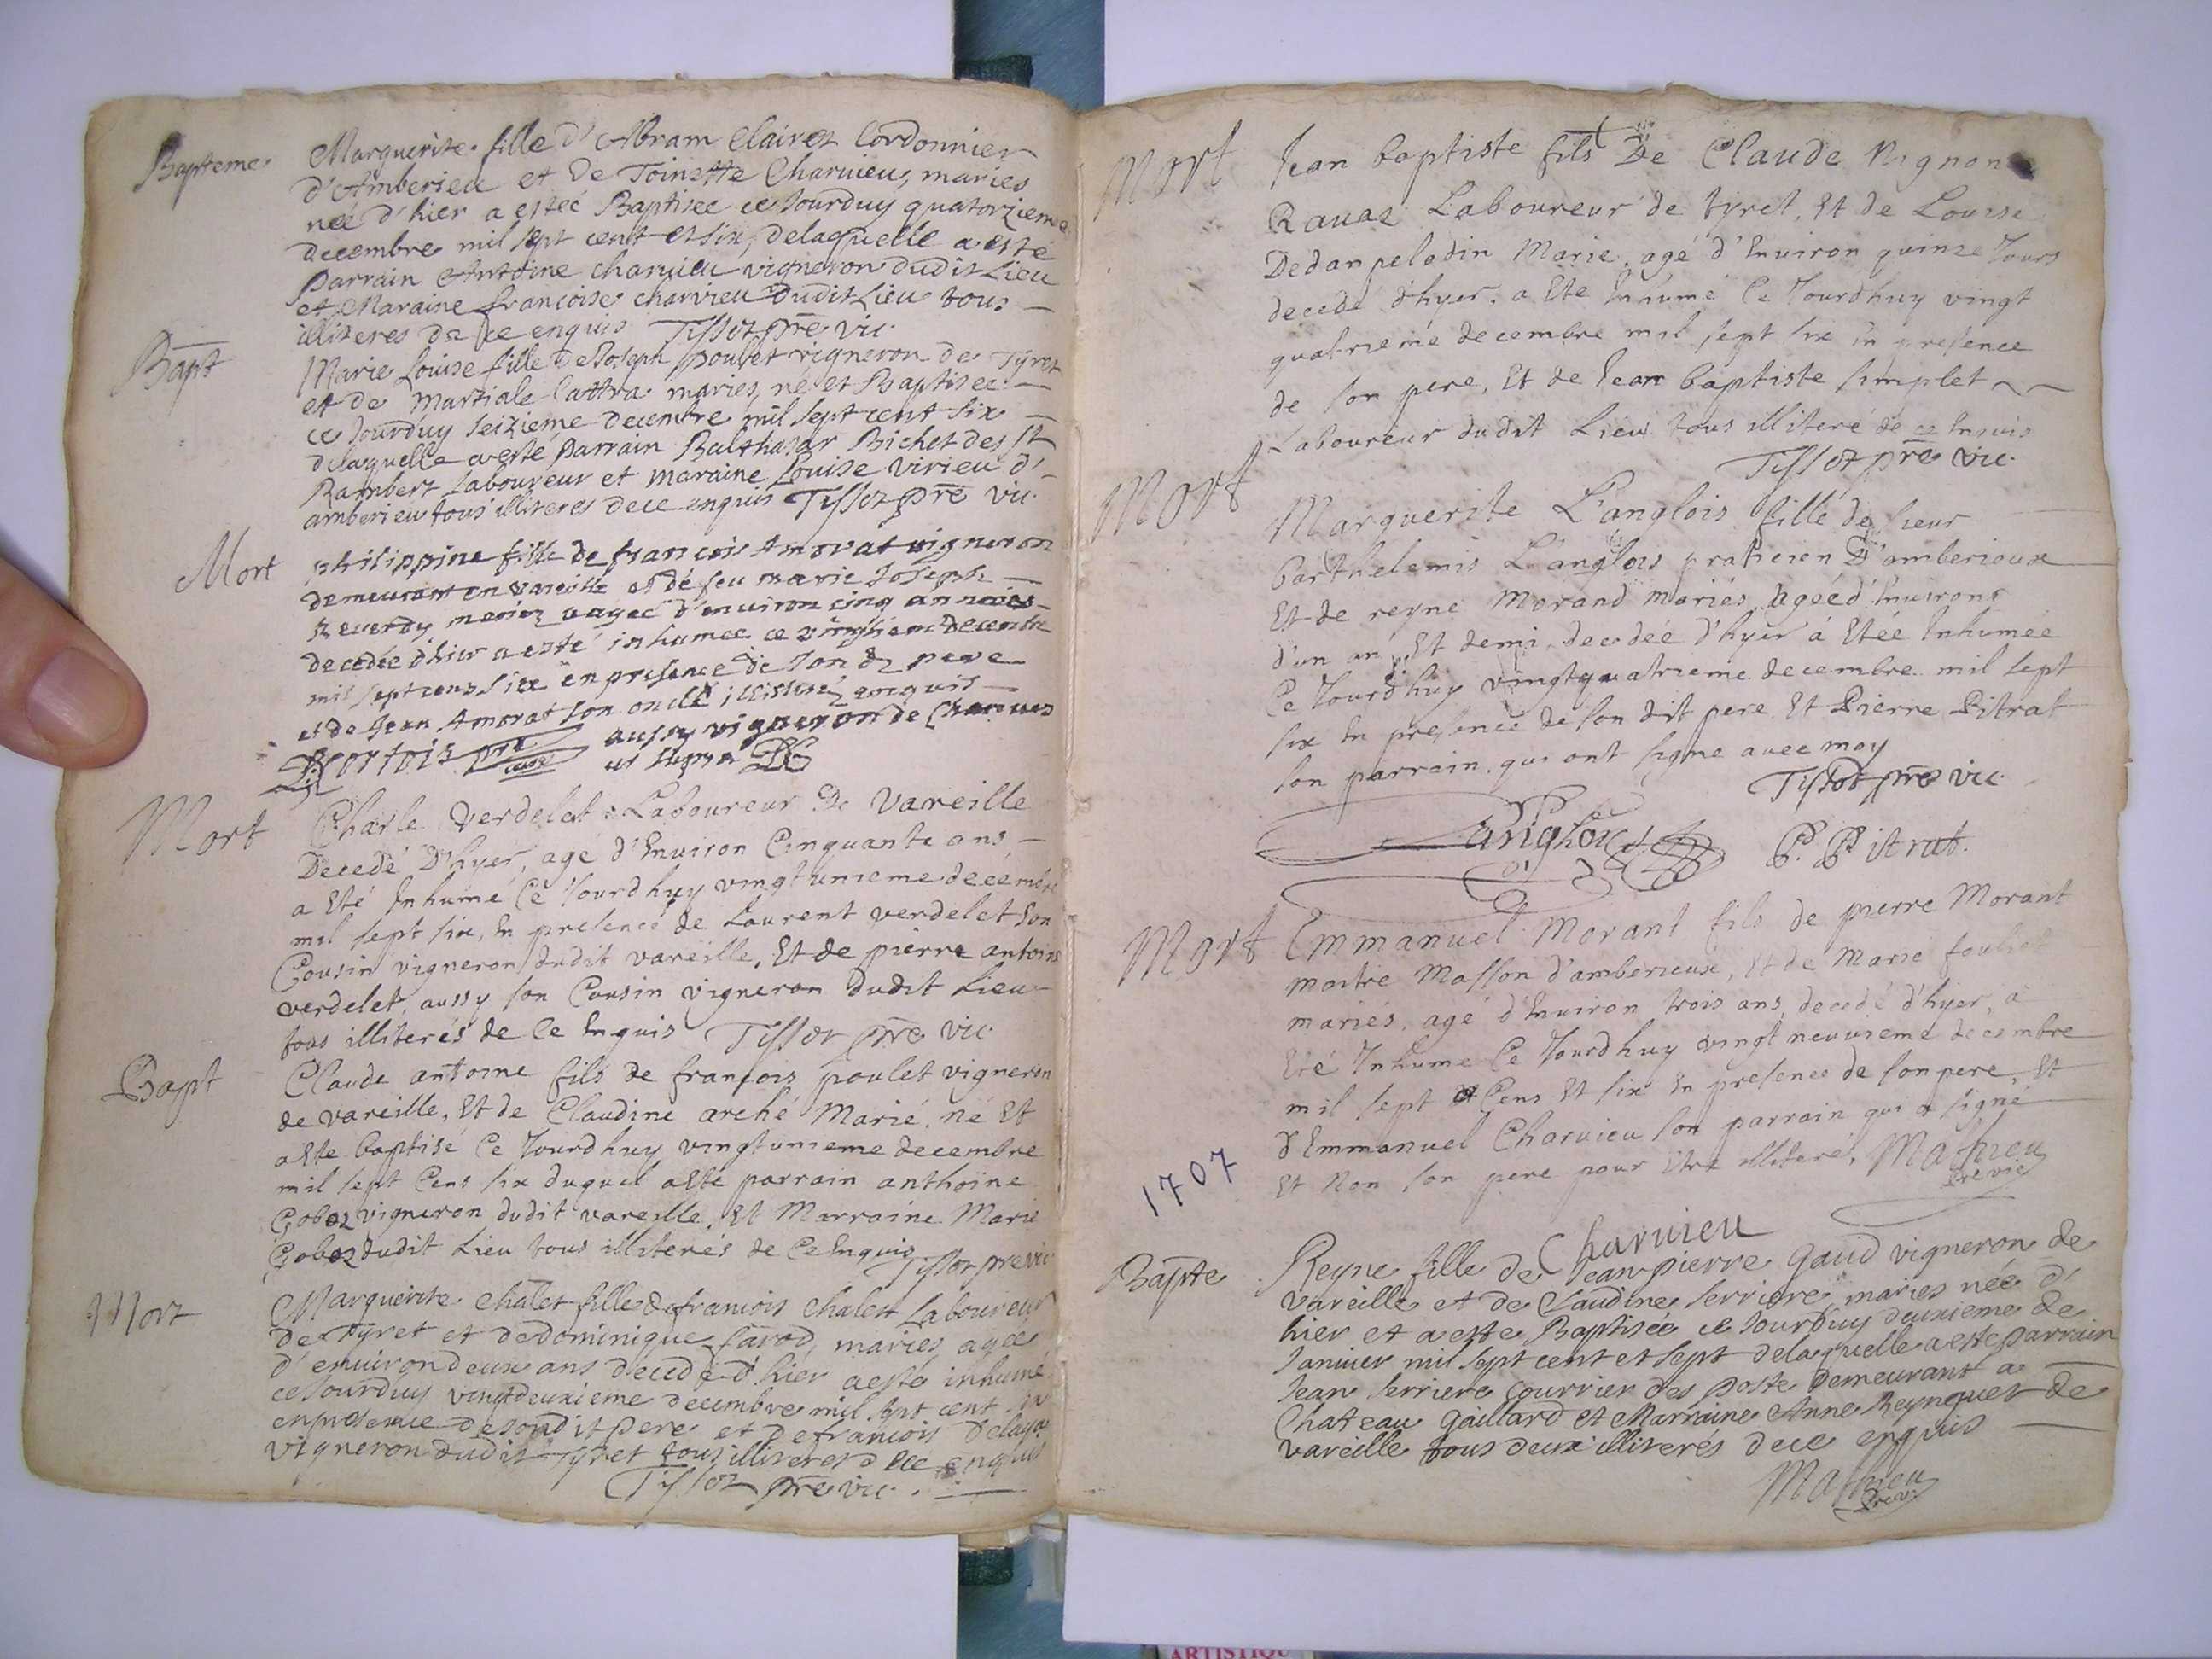 Bapteme
Marguerite fille d'Abram Clairet Cordonnier
d'Amberieu et de Toinette Charvieu, maries
née d'hier a estéé Baptisee ce Jourduy quatorzieme
decembre mil sept cent et six, delaquelle a esté
parrain Antoine charvieu vigneron dudit Lieu
et Maraine francoise charvieu Dudit Lieu tous
illiteres de ce enquis Tissot pre vic.
Bapt
Marie Louise fille de Joseph poulet vigneron de Tyret
et de Martiale Cattra maries, né et Baptisee
ce Jourduy seizieme decembre mil sept cent six
delaquelle a esté parrain Balthazar Bichet des St
Rambert Laboureur et maraine Louise Virieu d'
amberieu tous illiteres de ce enquis Tissot pre vic.
Mort
philippine fille de francois Amorat vigneron
demeurant en vareille et dé feu marie Joseph
agee d'environ cinq années
decedée dhier a esté inhumee ce vingtieme decembre
mil sept cens six en presence de son dt pere
et de Jean Amorat son oncle illitteré enquis
aussy vigneron de
ut supra
Mort
Charle Verdelet Laboureur De Vareille
Decedé D'hyer, agé d'Environ Cinquante ans
a Eté Inhumé Ce Jourdhuy vingtunieme decembre
mil sept six, En presence de Laurent verdelet son
Cousin vigneron dudit vareille, Et de pierre antoine
verdelet, aussy son Cousin vigneron Dudit Lieu
tous illiterés de Ce Enquis Tissot pre vic
Bapt
Claude antoine fils de francois poulet vigneron
de vareille, Et de Claudine arché Marié, né Et
a Eté baptisé Ce Jourdhuy vingtunieme decembre
mil sept Cens six duquel a Eté parrain anthoine
Goboz vigneron dudit vareille, Et Marraine Marie
Goboz dudit Lieu tous illiterés de Ce Enquis Tissot pre vic
Mort
Marguerite chalet fille de francois chalet Laboureur
de Tyret et de Dominique Sarod, maries, agee
d'environ deux ans decedé d'hier a esté inhumé
ce Jourduy vingtdeuxieme decembre mil sept cent six
en presence de son dit pere et de francois Delaya
vigneron dudit Tyret tous illiteres de ce enquis
Tissot pre vic.
Mort
Jean baptiste fils De Claude Mignon
Ravaz Laboureur de tyret, Et de Louise
Dedanpeladin Marie, agé d'Environ quinze Jours
decedé d'hyer, a Eté Inhumé Ce Jourdhuy vingt
quatrieme decembre mil sept six En presence
de son pere, Et de Jean baptiste simplet
Laboureur dudit Lieu tous illiteré de ce Enquis
Tissot pre vic.
Mort
Marguerite L'anglois fille de sieur
barthelemis L'anglois praticien D'amberieux
Et de reyne Morand mariés, Agée d'Environt
d'un an, Et demi, decedée d'hyer á Etée Inhumée
Ce Jourdhuy vingtquatrieme decembre mil sept
six En presence de son dit pere Et Pierre Pitrat
son parrain qui ont signe avec moy
Tissot pre vic.
Langlois P. Pitrat.
Mort
Emmanuel Morant fils de pierre Morant
maitre Masson d'amberieux, Et de Marie
mariés, agé d'Environ trois ans, decedé d'hyer, a
Eté Inhumé Ce Jourdhuy vingt neuvieme decembre
mil sept Cens Et six En presence de son pere, Et
d'Emmanuel Charvieu son parrain qui a signé
Et Non son pere pour Etre illiteré, Mathieu
pre vic
1707
Charvieu
Bapte
Reyne fille de Jean pierre Gaud vigneron de
vareille et de Claudine Serriere maries née d'
hier et a esté Baptisée ce Jourduy deuxieme de
Janvier mil sept cent et sept de laquelle a esté parrain
Jean Serriere Courrier des poste Demeurant a
Chateau gaillard et Marraine Anne Reynquet de
vareille tous deux illiterés de ce enquis
Mathieu
pre vic